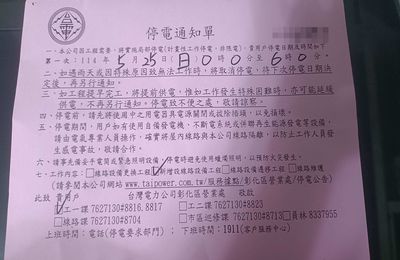 停電通知單
一、本公司因工程需要,將實施局部停電(計畫性工作停電,非限電),貴用戶停電日期及時間如下
第一次:114年5月25日(日)0時00分至6時0分。
二、如遇雨天或因特殊原因致無法工作時,將取消停電,待下次停電日期決定後,再另行通知。
三、如工程提早完工,將提前供電,惟如工作發生特殊困難時,亦可能延後供電,不再另行通知。停電致不便之處,敬請諒察。
四、停電前,請先將使用中之用電器具電源關閉或拔除插頭,以免損壞。
五、停電期間,用戶如有使用自備發電機、不斷電系統或併聯再生能源發電等設備,請由電氣專業人員操作,確實將屋內線路與本公司線路隔離,以防止工作人員發生感電事故,敬請合作。
六、請事先備妥手電筒或緊急照明設備,停電時避免使用蠟燭照明,以預防火災發生。
七、工作內容:□線路設備更換工程☑新增設線路設備工程□線路設備遷移工程□線路維護
(請參閱本公司網站www.taipower.com.tw/服務據點/彰化區營業處/停電公告)
此致 貴用戶 台灣電力公司彰化區營業處 敬啟
☑工一課7627130#8816.8817 □工二課7627130#8823
□線路課7627130#8704 □市區巡修課7627130#8713□員林8337955
上班時間:電話(停電要求部門); 下班時間:1911(客戶服務中心)